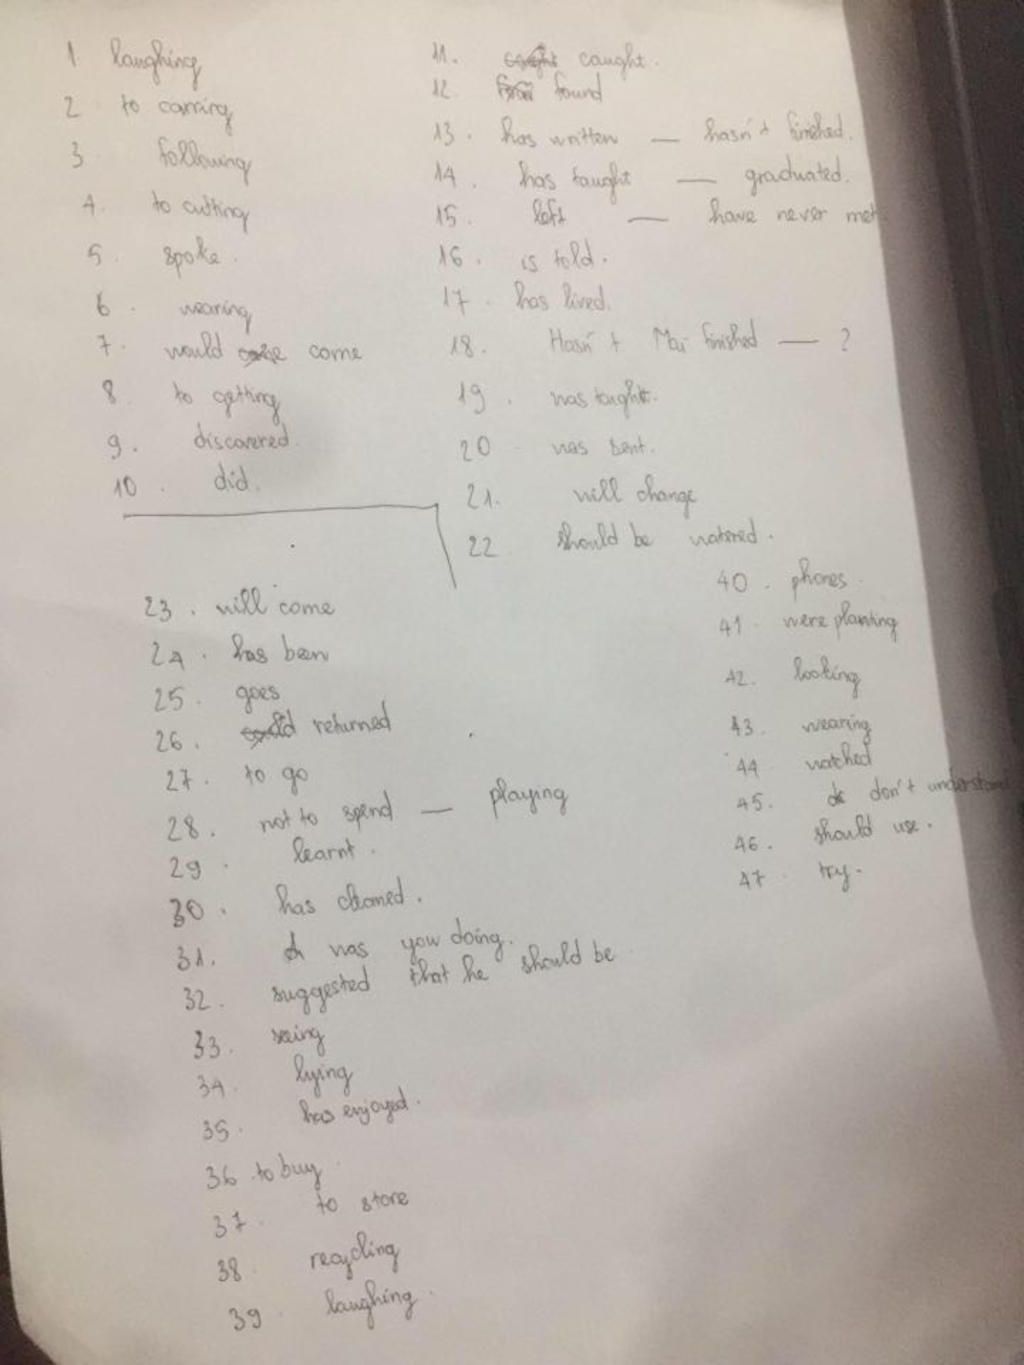 1 laughing
2 to carring
3 following
4. to cutting
5. spoke.
6. wearing
7. would come
8 to getting
9. discovered.
10. did.
11. caught.
12. found
13. has written — hasn't finished.
14. has taught — graduated.
15. left — have never met.
16. is told.
17. has lived.
18. Hasn't Mai finished — ?
19. was taught.
20 was sent.
21. will change
22 should be watered.
23. will come
24. has been
25. goes
26. returned
27. to go
28. not to spend — playing
29. learnt.
30. has cleaned.
31. was you doing.
32. suggested that he should be
33. seing
34. lying
35. has enjoyed.
36 to buy
37. to store
38 recycling
39. laughing.
40. phones.
41. were planting
42. looking
43. wearing
44 watched
45. don't understand
46. should use.
47. try.